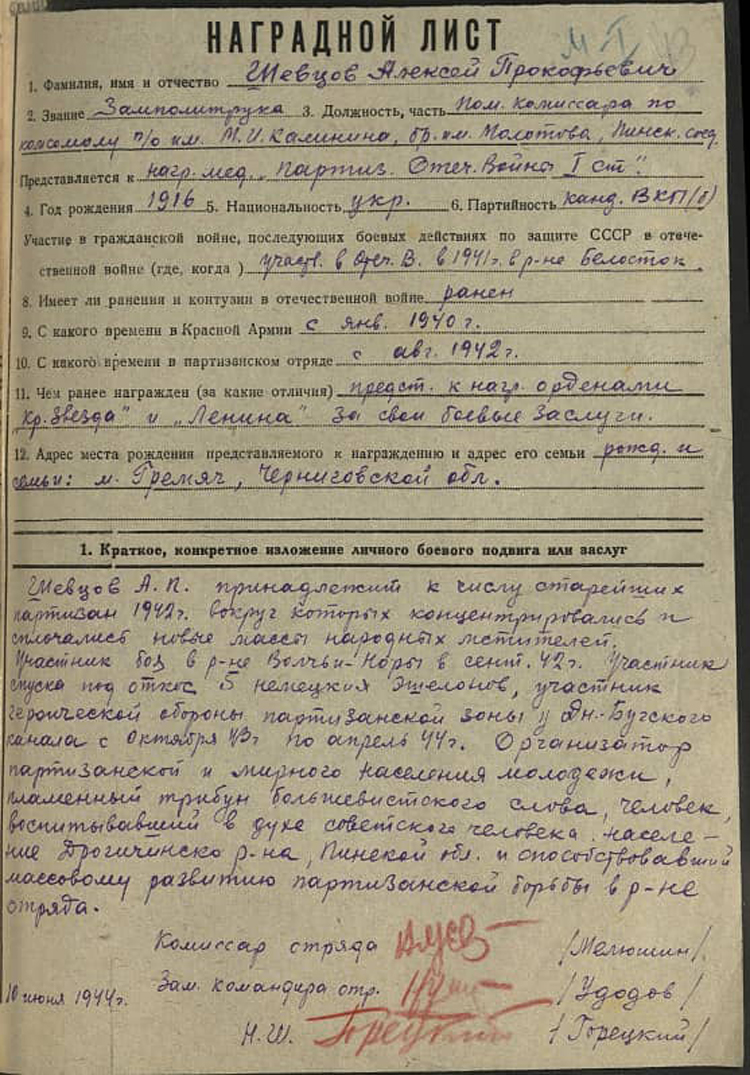 НАГРАДНОЙ ЛИСТ
1. Фамилия, имя и отчество Шевцов Алексей Прокофьевич
2. Звание Замполитрука 3. Должность, часть Пом. комиссара по
комсомолу п/о им. М.И. Калинина, бр. им. Молотова, Пинск. соед.
Представляется к нагр. мед. „Партиз. Отеч. Войны I ст".
4. Год рождения 1916 5. Национальность укр. 6. Партийность канд. ВКП/б/
Участие в гражданской войне, последующих боевых действиях по защите СССР в отече-
ственной войне (где, когда) участ. в Отеч. В. в 1941г. в р-не Белосток.
8. Имеет ли ранения и контузии в отечественной войне ранен
9. С какого времени в Красной Армии с янв. 1940г.
10. С какого времени в партизанском отряде с авг. 1942г.
11. Чем ранее награжден (за какие отличия) предст. к нагр. орденами
„Кр. Звезда" и „Ленина" за свои боевые заслуги.
12. Адрес места рождения представляемого к награждению и адрес его семьи рожд. и
семьи: м. Гремяч, Черниговской обл.
1. Краткое, конкретное изложение личного боевого подвига или заслуг
Шевцов А. П. принадлежит к числу старейших
партизан 1942г. вокруг которых концентрировались и
сплочались новые массы народных мстителей.
Участник боя в р-не Волчьи-Норы в сент. 42г. Участник
спуска под откос 5 немецких эшелонов, участник
героической обороны партизанской зоны у Дн.-Бугского
канала с октября 43г по апрель 44г. Организатор
партизанской и мирного населения молодежи,
пламенный трибун большевистского слова, человек,
воспитывавший в духе советского человека населе-
ние Дрогичинско р-на, Пинской обл. и способствовавший
массовому развитию партизанской борьбы в р-не
отряда.
Комиссар отряда /Мелюшин/
10 июня 1944г. Зам. командира отр. /Удодов/
Н.Ш. Горецкий /Горецкий/